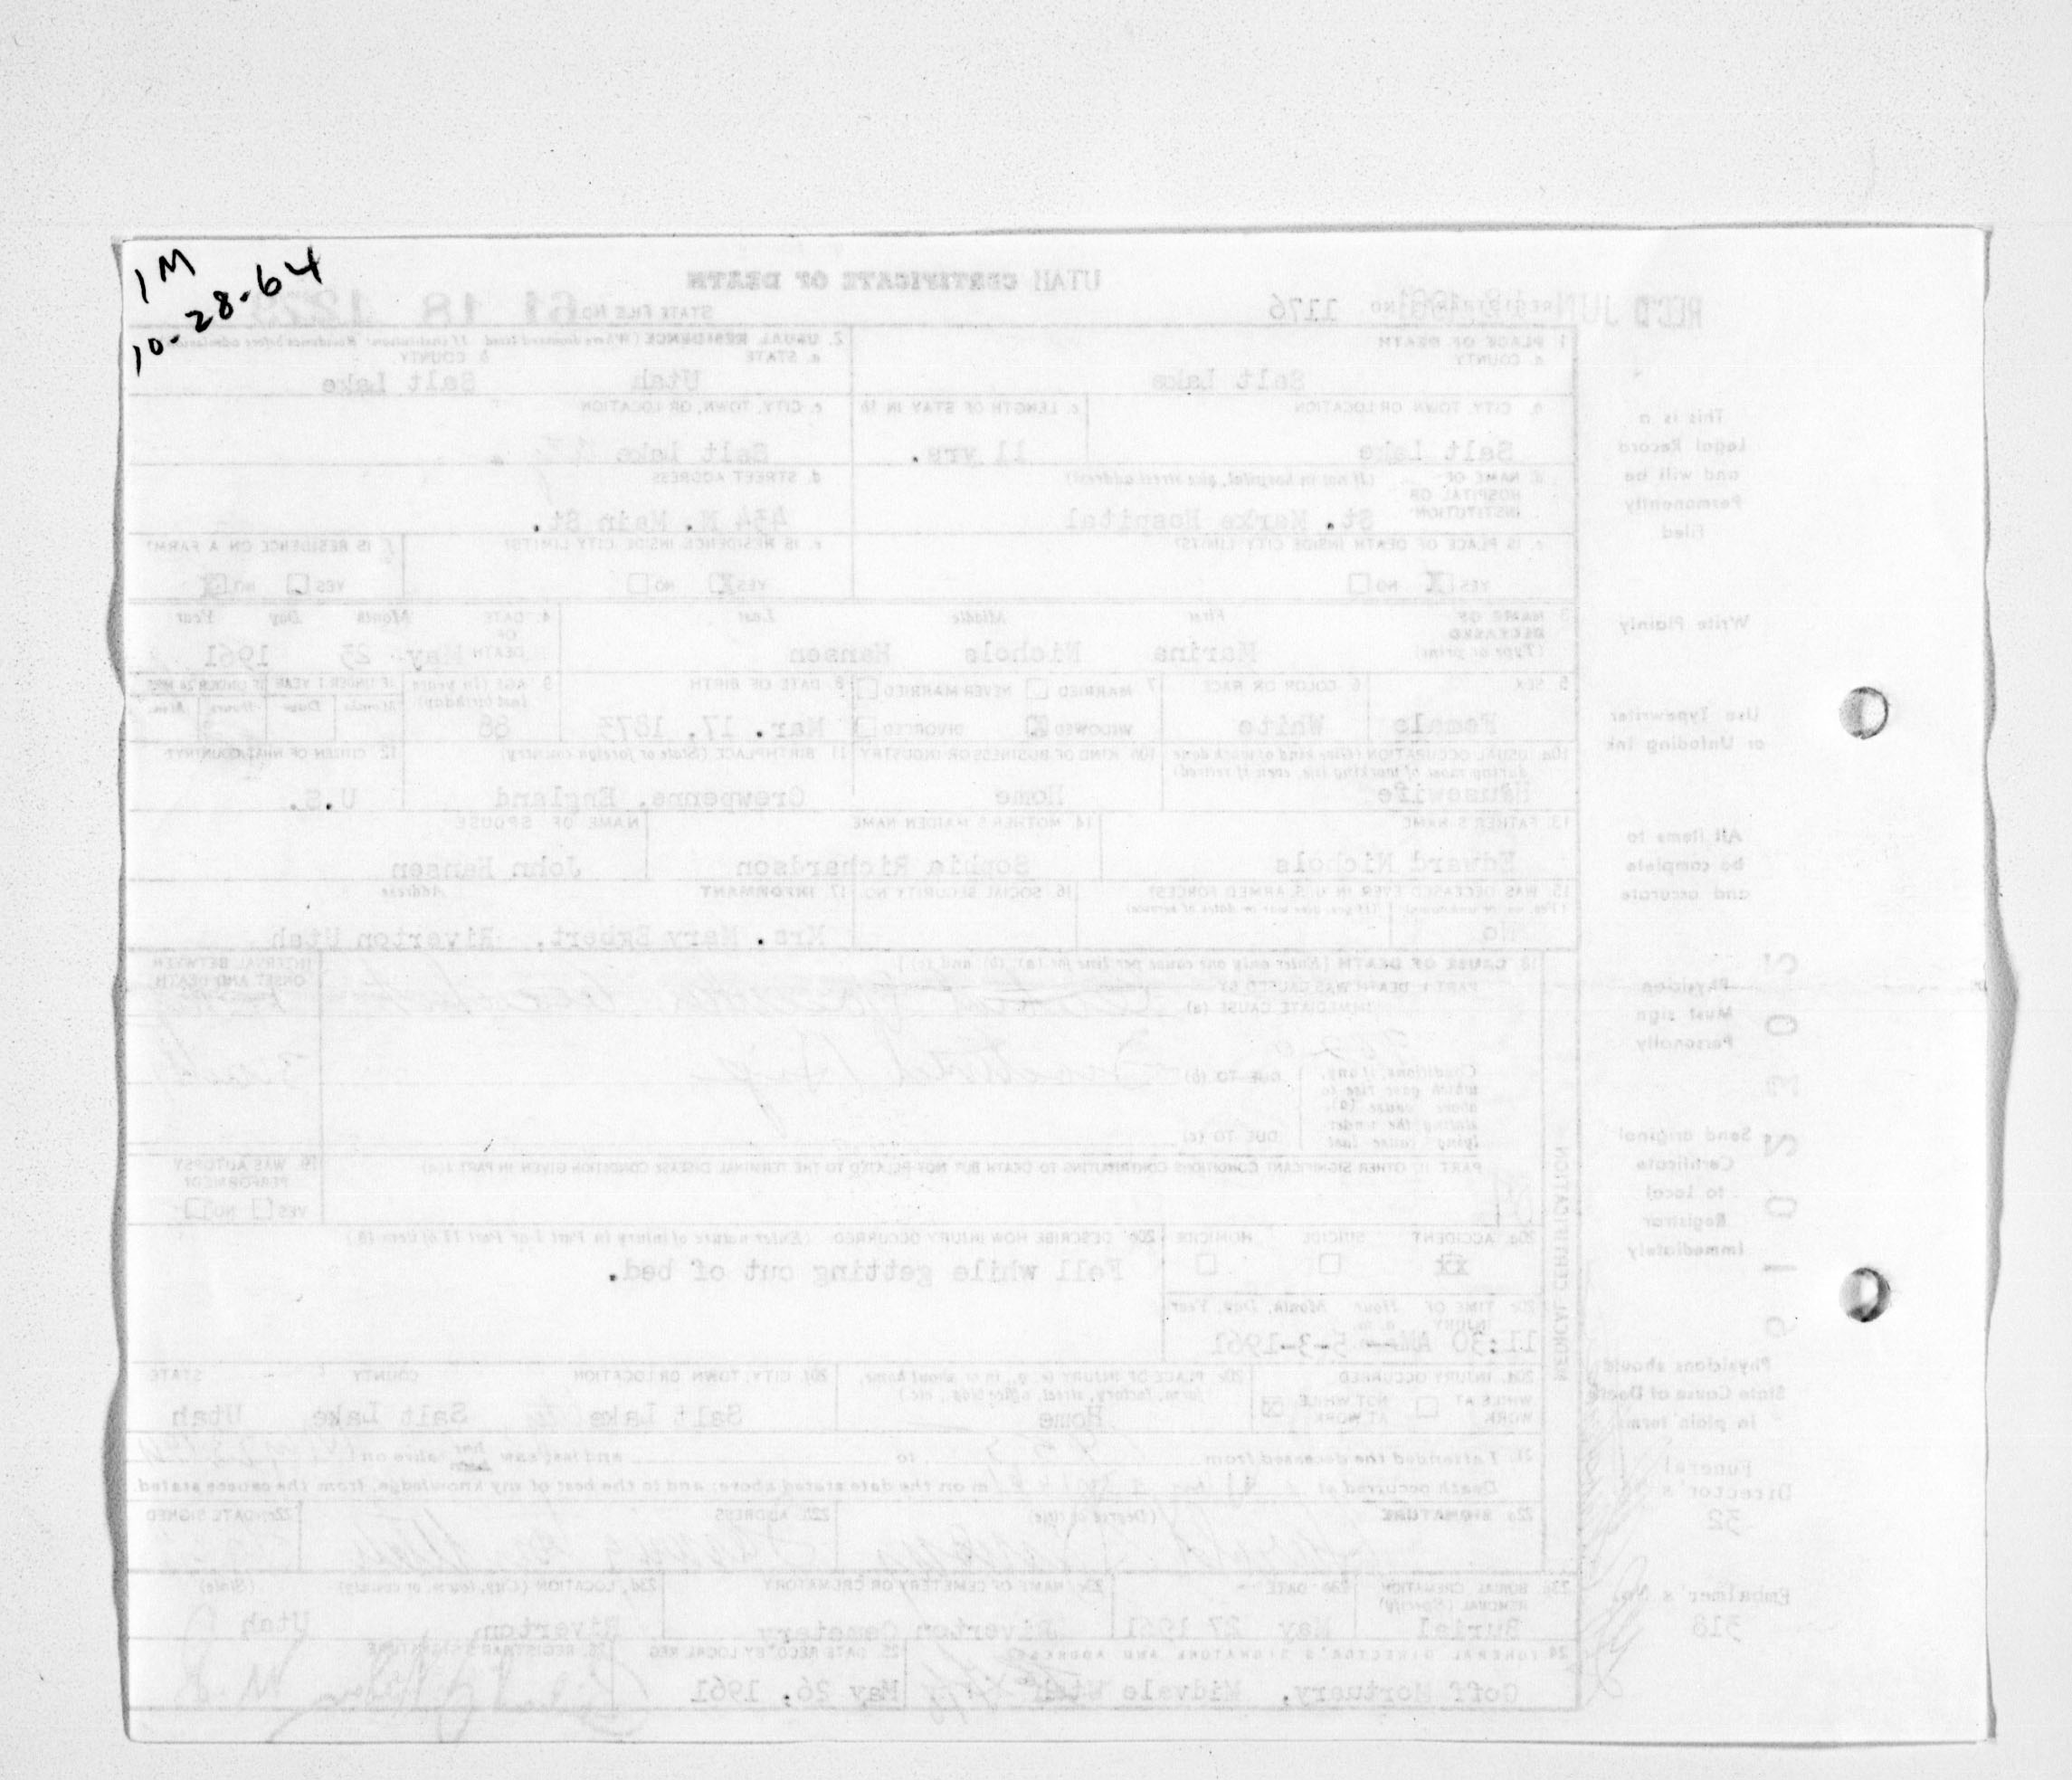 1M
10-28-64
REC'D JUN
REGISTRAR'S NO. 1176
UTAH CERTIFICATE OF DEATH
STATE FILE NO. 61 18
This is a
Legal Record
and will be
Permanently
Filed
Write Plainly
Use Typewriter
or Unfading Ink
All items to
be complete
and accurate
Physician
Must sign
Personally
Send original
Certificate
to Local
Registrar
Immediately
Physicians should
State Cause of Death
in plain terms
Funeral
Director's
32
Embalmer's No.
318
1. PLACE OF DEATH
a. COUNTY
Salt Lake
2. USUAL RESIDENCE (Where deceased lived. If institution: Residence before admission)
a. STATE b. COUNTY
Utah Salt Lake
CITY, TOWN, OR LOCATION
Salt Lake
c. LENGTH OF STAY IN 1b
11 yrs.
c. CITY, TOWN, OR LOCATION
Salt Lake
d. NAME OF HOSPITAL OR INSTITUTION (If not in hospital, give street address)
St. Marks Hospital
d. STREET ADDRESS
434 N. Main St.
e. IS PLACE OF DEATH INSIDE CITY LIMITS?
YES X NO
e. IS RESIDENCE INSIDE CITY LIMITS?
YES X NO
f. IS RESIDENCE ON A FARM?
YES NO X
3. NAME OF DECEASED (Type or print)
First Middle Last
Marina Nichols Hansen
4. DATE OF DEATH
Month Day Year
May 23 1961
5. SEX
Female
6. COLOR OR RACE
White
7. MARRIED NEVER MARRIED
WIDOWED X DIVORCED
8. DATE OF BIRTH
Mar. 17, 1873
9. AGE (In years last birthday)
88
IF UNDER 1 YEAR
Months Days
IF UNDER 24 HRS.
Hours Min.
10a. USUAL OCCUPATION (Give kind of work done during most of working life, even if retired)
Housewife
10b. KIND OF BUSINESS OR INDUSTRY
Home
11. BIRTHPLACE (State or foreign country)
Crewpenne, England
12. CITIZEN OF WHAT COUNTRY?
U.S.
13. FATHER'S NAME
Edward Nichols
14. MOTHER'S MAIDEN NAME
Sophia Richardson
NAME OF SPOUSE
John Hansen
15. WAS DECEASED EVER IN U.S. ARMED FORCES?
(Yes, no, or unknown) (If yes, give war or dates of service)
No
16. SOCIAL SECURITY NO.
17. INFORMANT Address
Mrs. Mary Egbert, Riverton Utah
18. CAUSE OF DEATH [Enter only one cause per line for (a), (b), and (c).]
PART I. DEATH WAS CAUSED BY:
IMMEDIATE CAUSE (a)
INTERVAL BETWEEN ONSET AND DEATH
Conditions, if any, which gave rise to above cause (a), stating the underlying cause last
DUE TO (b) Fractured Hip
DUE TO (c)
PART II. OTHER SIGNIFICANT CONDITIONS CONTRIBUTING TO DEATH BUT NOT RELATED TO THE TERMINAL DISEASE CONDITION GIVEN IN PART I(a)
19. WAS AUTOPSY PERFORMED?
YES NO
MEDICAL CERTIFICATION
20a. ACCIDENT SUICIDE HOMICIDE
XX
20b. DESCRIBE HOW INJURY OCCURRED. (Enter nature of injury in Part I or Part II of item 18.)
Fell while getting out of bed.
20c. TIME OF INJURY Hour Month, Day, Year
11:30 AM-- 5-3-1961
20d. INJURY OCCURRED
WHILE AT WORK NOT WHILE AT WORK X
20e. PLACE OF INJURY (e.g., in or about home, farm, factory, street, office bldg., etc.)
Home
20f. CITY, TOWN OR LOCATION COUNTY STATE
Salt Lake City Salt Lake Utah
21. I attended the deceased from to and last saw her alive on
Death occurred at m on the date stated above; and to the best of my knowledge, from the causes stated.
22a. SIGNATURE (Degree or title)
22b. ADDRESS
22c. DATE SIGNED
23a. BURIAL, CREMATION, REMOVAL (Specify)
Burial
23b. DATE
May 27 1961
23c. NAME OF CEMETERY OR CREMATORY
Riverton Cemetery
23d. LOCATION (City, town, or county) (State)
Riverton, Utah
24. FUNERAL DIRECTOR'S SIGNATURE AND ADDRESS
Goff Mortuary, Midvale Utah
25. DATE REC'D BY LOCAL REG.
May 26, 1961
26. REGISTRAR'S SIGNATURE